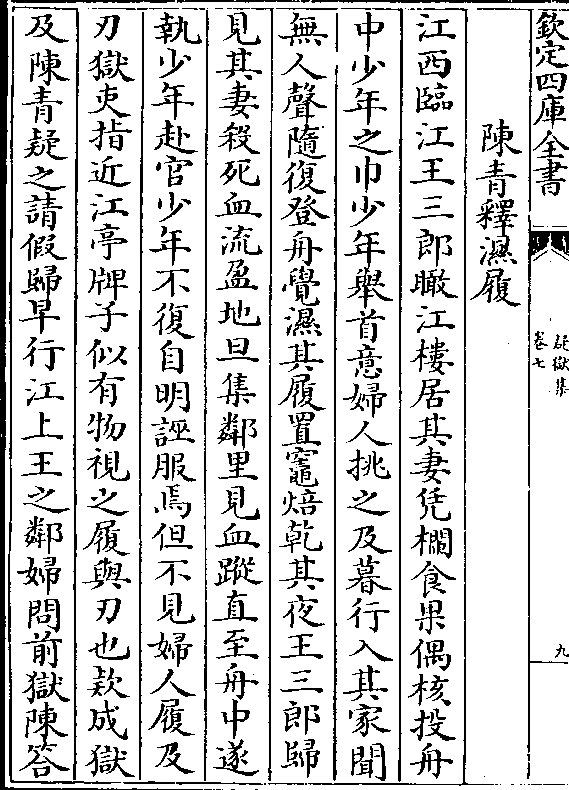 欽定四庫全書
疑獄集
卷七
九
陳青釋濕履
江西臨江王三郎瞰江樓居其妻凭欄食果偶核投舟
中少年之巾少年舉首意婦人挑之及暮行入其家聞
無人聲隨復登舟覺濕其履置竈焙乾其夜王三郎歸
見其妻殺死血流盈地旦集鄰里見血蹤直至舟中遂
執少年赴官少年不復自明誣服焉但不見婦人履及
刃獄吏指近江亭牌子似有物視之履與刃也欵成獄
及陳青疑之請假歸早行江上王之鄰婦問前獄陳答